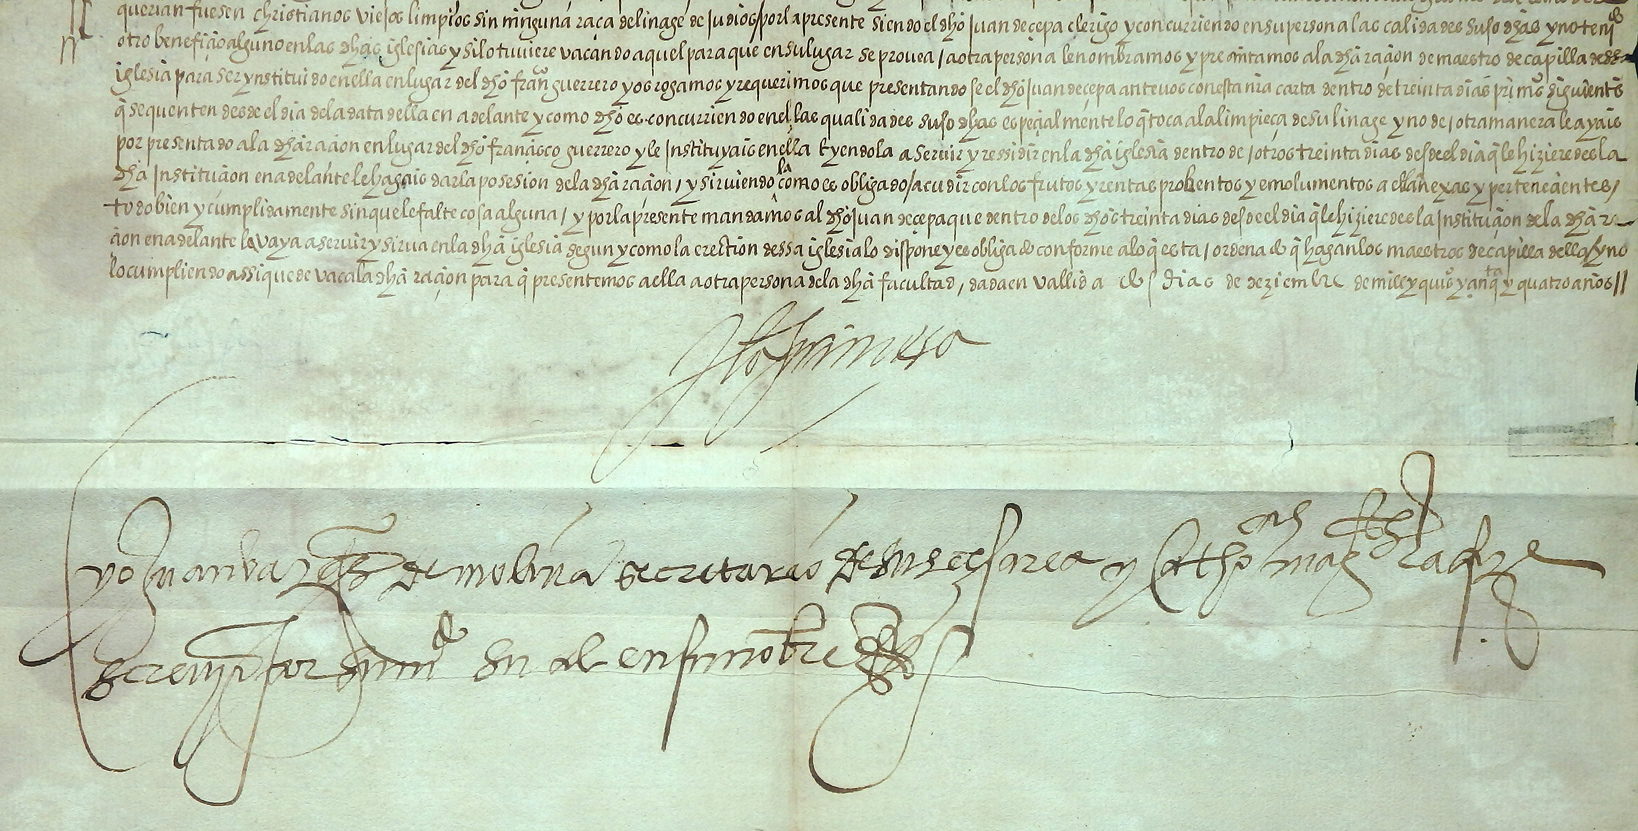 querian fuesen christianos viejos limpios sin ninguna raça de linage de judios / por la presente siendo el dho Juan de cepa clerigo y concurriendo en su persona las calidades suso dhas y no teniẽdo
otro benefiçio alguno en las dhas iglesias y si lo tuviere vacando aquel para que en su lugar se provea / a otra persona le nombramos y presentamos a la dha raçion de maestro de capilla dessa
iglesia para ser ynstituido en ella en lugar del dho franco guerrero y os rogamos y requerimos que presentandose el dho Juan de çepa ante vos con esta nra carta dentro de treinta dias primos siguientes
q̃ se quenten desde el dia de la data della en adelante y como dho es concurriendo en el las qualidades suso dhas espeçialmente lo q̃ toca a la limpieça de su linage y no de / otra manera le ayais
por presentado a la dha raçion en lugar del dho françisco guerrero y le Instituyais en ella E yendola a servir y ressidir en la dha iglesia dentro de / otros treinta dias desde el dia q̃ le hizieredes la
dha Instituçion en adelante le hagais dar la posesion de la dha raçion / y sirviendola como es obligado / acudir con los frutos y rentas probentos y emolumentos a ella anexas y perteneçientes /
todo bien y cumplidamente sin que le falte cosa alguna / y por la presente mandamos al dho Juan de çepa que dentro de los dhos treinta dias desde el dia q̃ le hizieredes la Instituçion de la dha ra
çion en adelante la vaya a servir y sirva en la dha iglesia segun y como la erection dessa iglesia lo dispone y es obligado conforme a lo q̃ esta / ordenado q̃ hagan los maestros de capilla della / y no
lo cumpliendo assi que de vaca la dha raçion para q̃ presentemos a ella a otra persona de la dha facultad, dada en vallid a dias de deziembre de mill y quios y çinqta y quatro años //
yo Juan vazqz de molina secretario de su cesarea y Catholica magd la fize
screvir por mando su al en su nobre